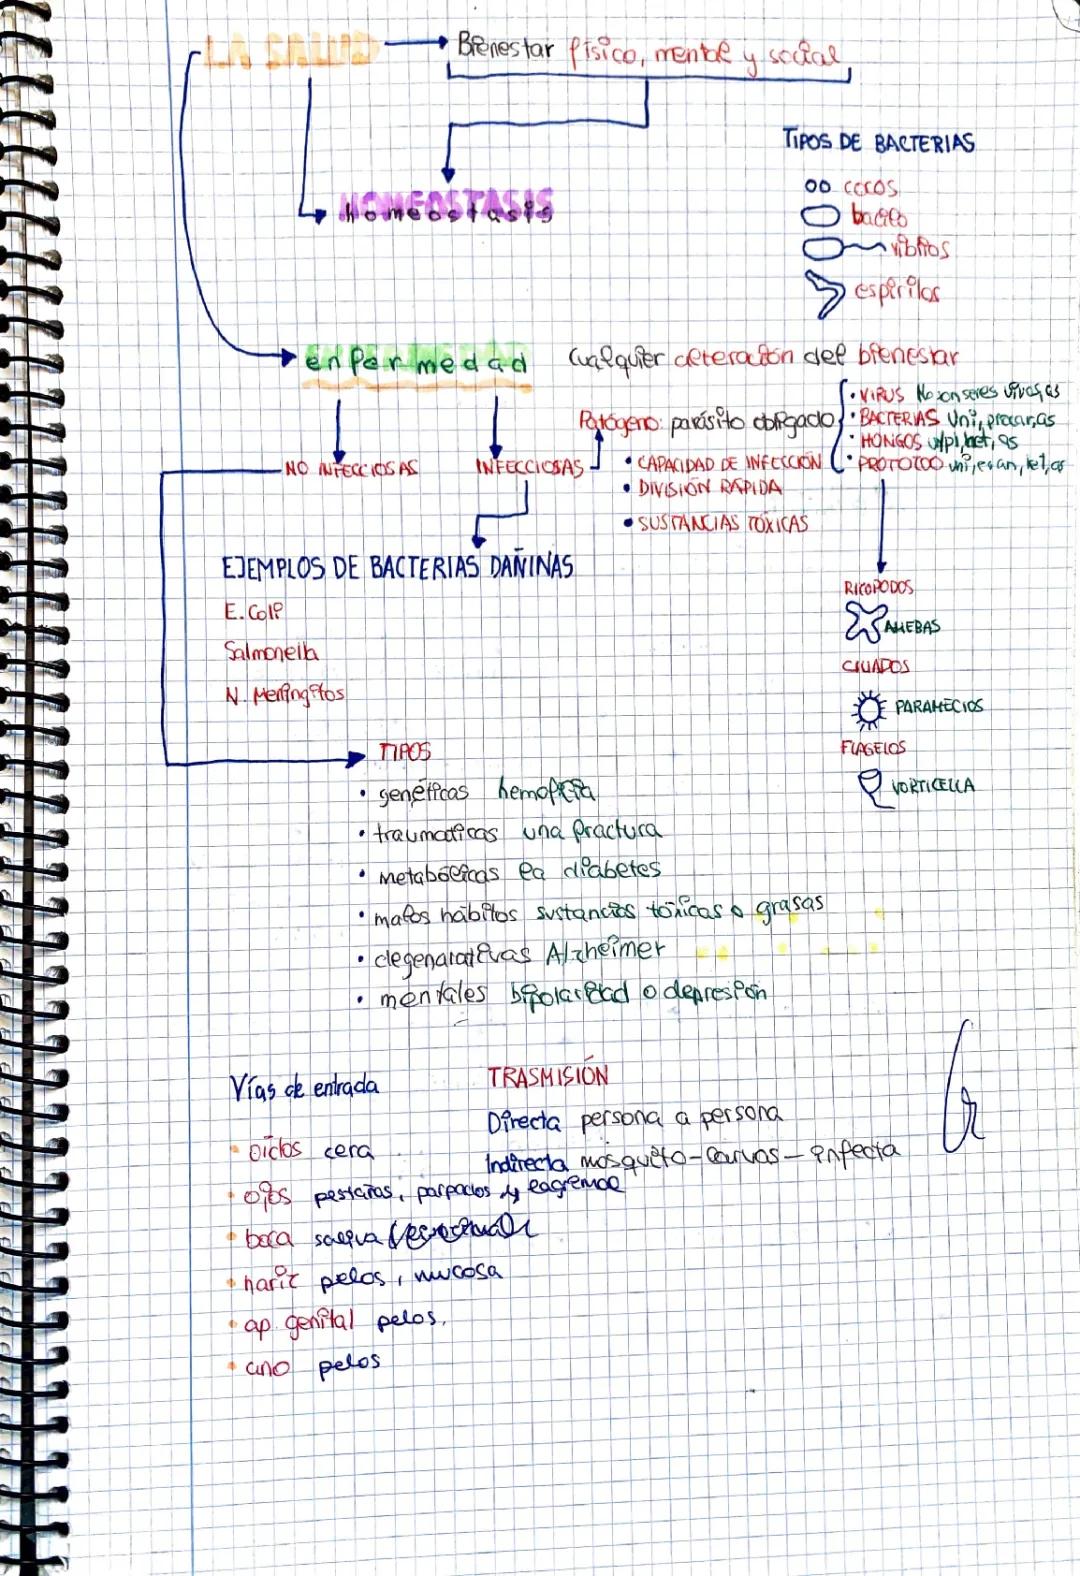 LA SALUD Bienestar físico, mental y social
HOMEOSTASIS
homeostasis
TIPOS DE BACTERIAS
cocos
bacilo
vibrios
espirilos
enfermedad Cualquier deteración del bienestar
Patógeno: parásito obligado
• VIRUS No son seres vivos, as
• BACTERIAS Uni, procar, as
• HONGOS het, as
• PROTOZOO uni, eucar, het, as
NO INFECCIOSAS
INFECCIOSAS
• CAPACIDAD DE INFECCIÓN
• DIVISIÓN RÁPIDA
• SUSTANCIAS TÓXICAS
EJEMPLOS DE BACTERIAS DAÑINAS
E. Coli
Salmonella
N. Meningitos
RICOPODOS
AMEBAS
CILIADOS
PARAMECIOS
FLAGELOS
VORTICELLA
TIPOS
• genéticas hemofilia
• traumaticas una fractura
• metabólicas la diabetes
• malos hábitos sustancias tóxicas o grasas
• degenarativas Alzheimer
• mentales bipolaridad o depresión
Vías de entrada
• oídos cera
• ojos pestañas, parpados y lagrimas
• boca saliva
• nariz pelos, mucosa
• ap. genital pelos,
• ano pelos
TRASMISIÓN
Directa persona a persona
Indirecta mosquito-larvas-infecta